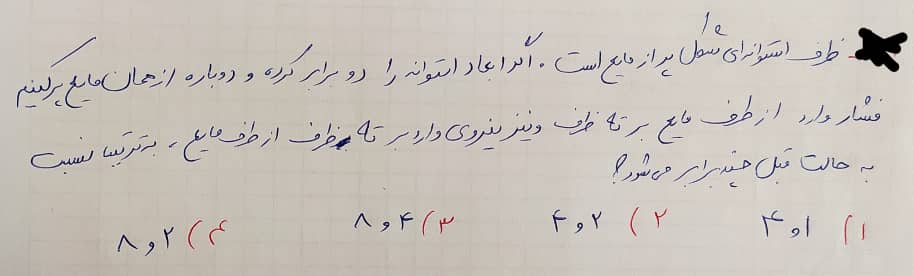 ظرف استوانه‌ای شکل پر از مایع است. اگر ابعاد استوانه را دو برابر کرده و دوباره از همان مایع پر کنیم
فشار وارد از طرف مایع بر ته ظرف و نیز نیروی وارد بر ته ظرف از طرف مایع، به ترتیب نسبت
به حالت قبل چند برابر می‌شود؟
۱) ۱ و ۴ ۲) ۲ و ۴ ۳) ۴ و ۸ ۴) ۲ و ۸